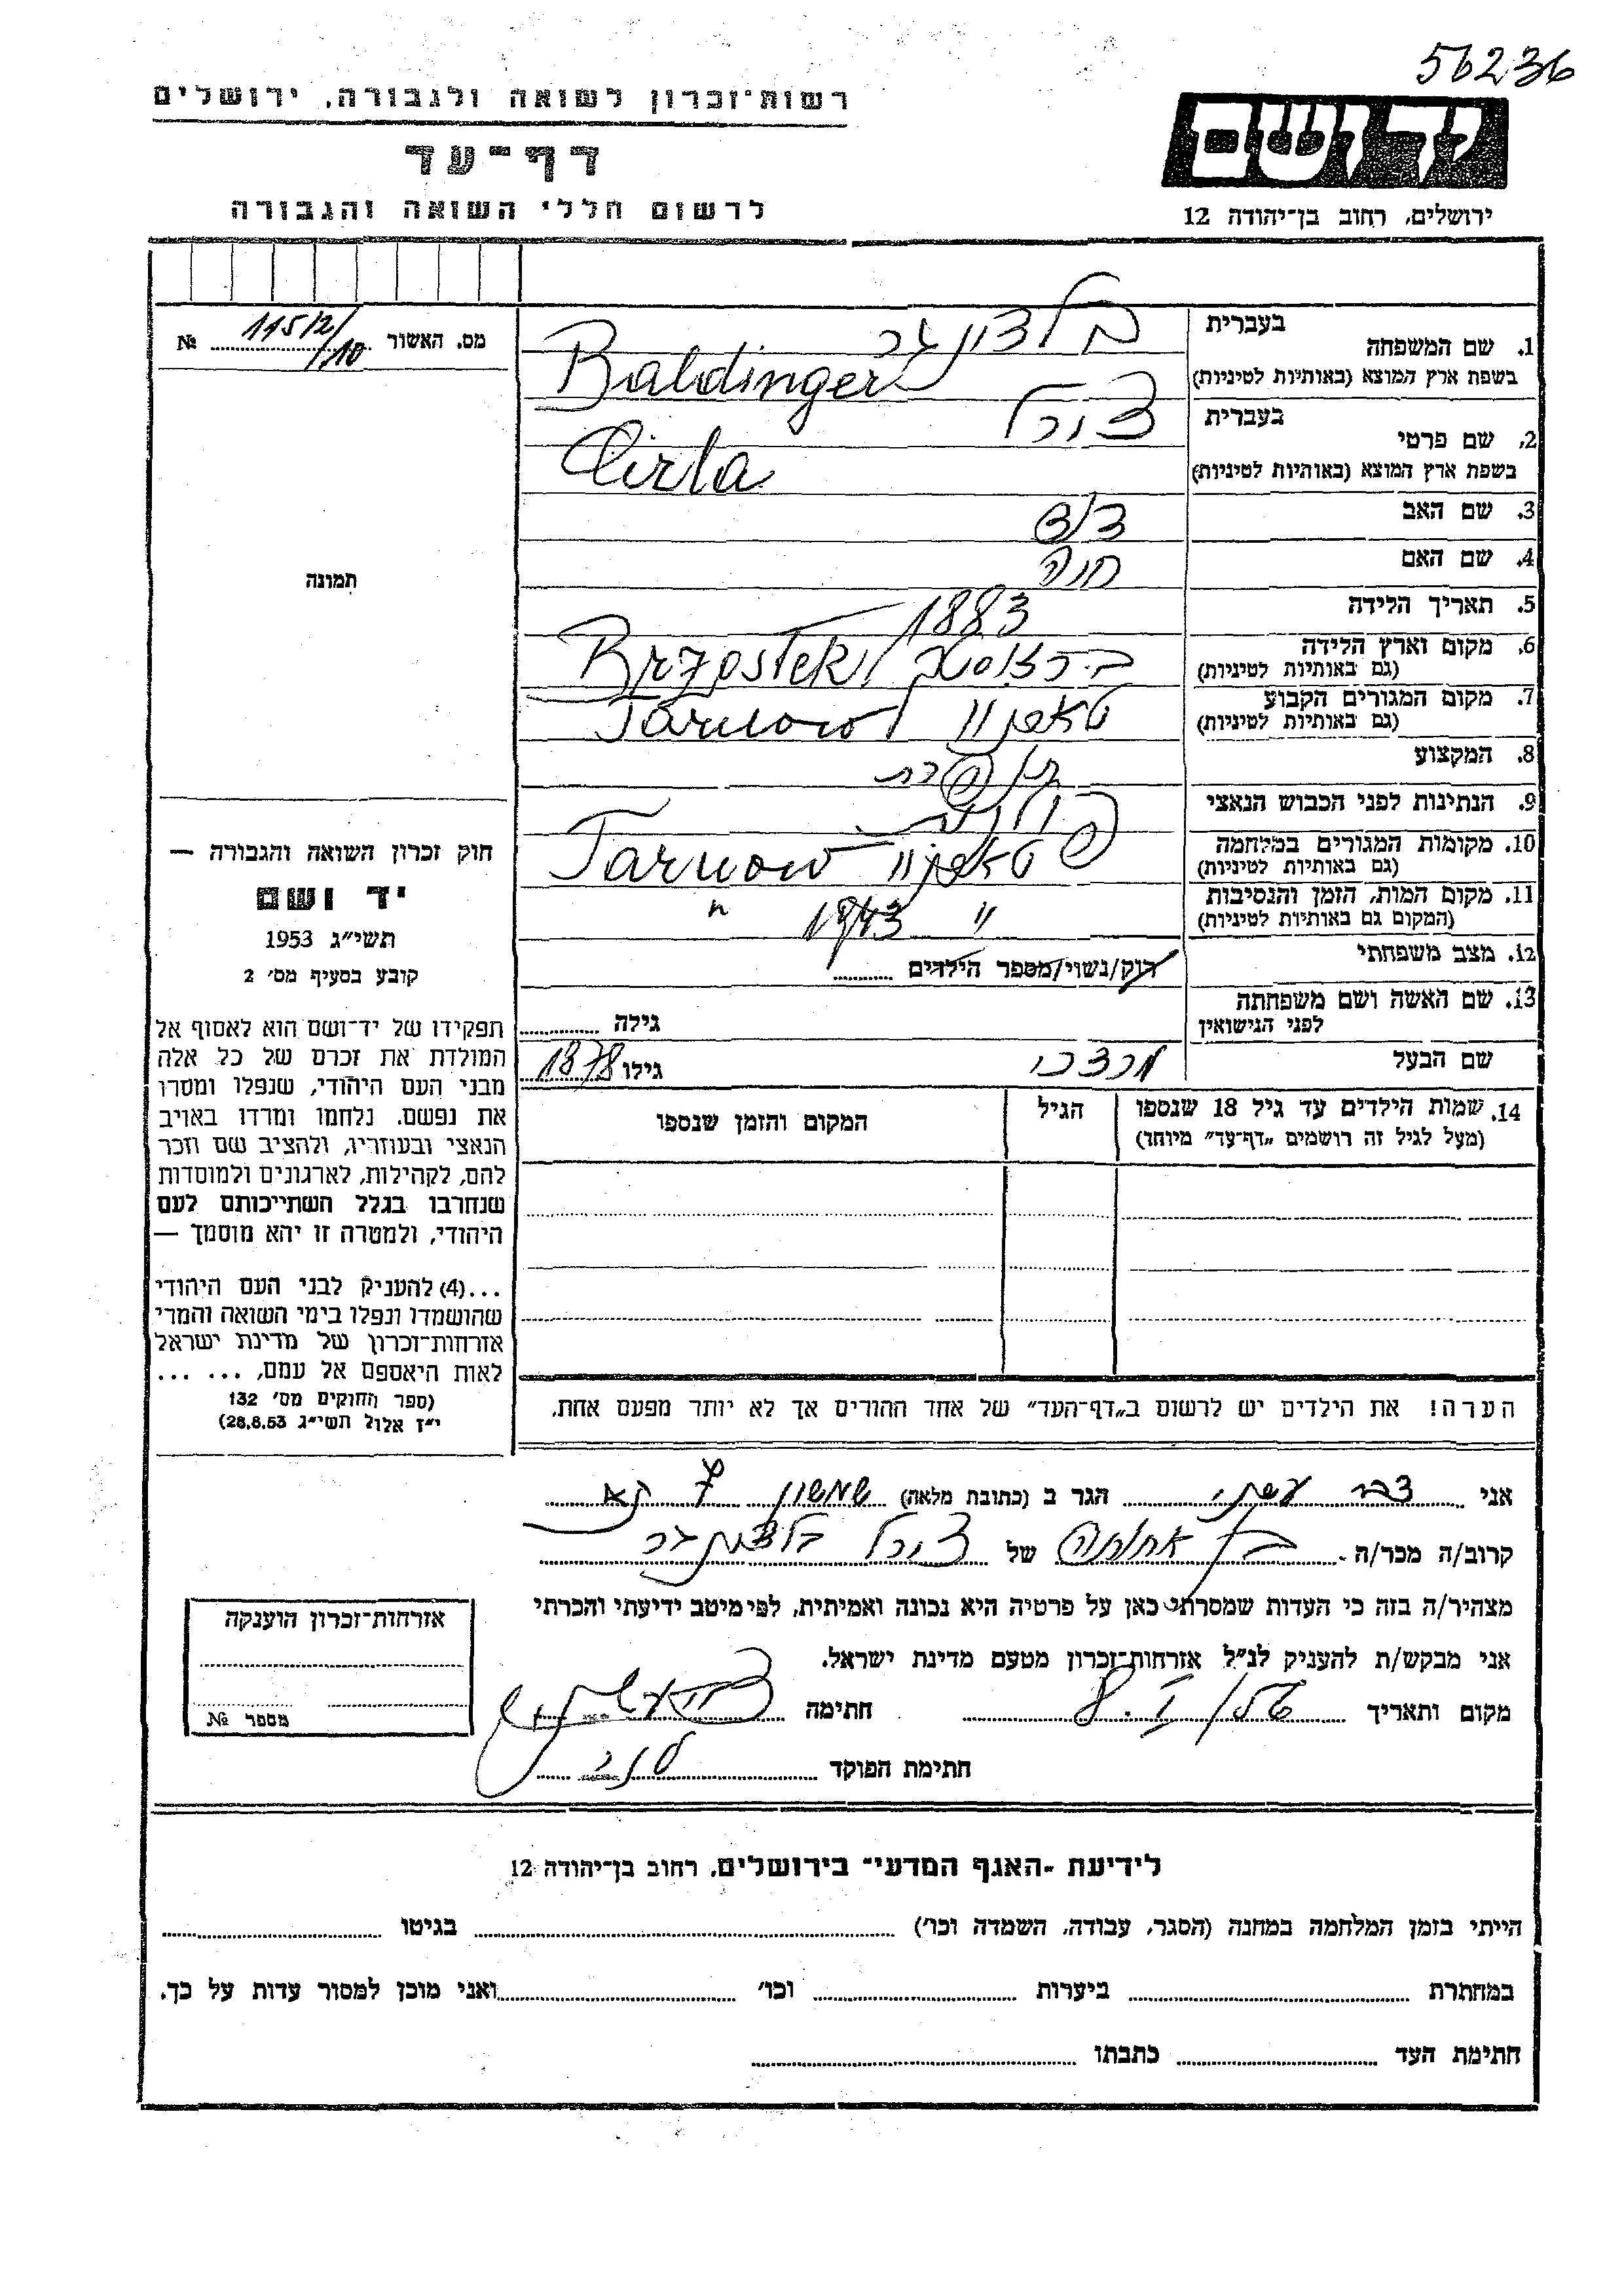 56236
רשות־זכרון לשואה ולגבורה, ירושלים
דף־עד
לרשום חללי השואה והגבורה
יד ושם
ירושלים, רחוב בן־יהודה 12
מס. האשור 115/2/110 №
תמונה
1. שם המשפחה בעברית בלדינגר
בשפת ארץ המוצא (באותיות לטיניות) Baldinger
2. שם פרטי בעברית צירל
בשפת ארץ המוצא (באותיות לטיניות) Cirla
3. שם האב דוד
4. שם האם חנה
5. תאריך הלידה 1883
6. מקום וארץ הלידה
(גם באותיות לטיניות) Brzostek
7. מקום המגורים הקבוע
(גם באותיות לטיניות) Tarnow
8. המקצוע
9. הנתינות לפני הכבוש הנאצי
10. מקומות המגורים במלחמה
(גם באותיות לטיניות) Tarnow
11. מקום המות, הזמן והנסיבות
(המקום גם באותיות לטיניות) " 1943 "
12. מצב משפחתי רוק/נשוי/מספר הילדים
13. שם האשה ושם משפחתה
לפני הנישואין גילה
שם הבעל גילו 1878
14. שמות הילדים עד גיל 18 שנספו הגיל המקום והזמן שנספו
(מעל לגיל זה רושמים „דף־עד” מיוחד)
חוק זכרון השואה והגבורה —
יד ושם
תשי״ג 1953
קובע בסעיף מס׳ 2
תפקידו של יד־ושם הוא לאסוף אל
המולדת את זכרם של כל אלה
מבני העם היהודי, שנפלו ומסרו
את נפשם, נלחמו ומרדו באויב
הנאצי ובעוזריו, ולהציב שם וזכר
להם, לקהילות, לארגונים ולמוסדות
שנחרבו בגלל השתייכותם לעם
היהודי, ולמטרה זו יהא מוסמך —
...(4) להעניק לבני העם היהודי
שהושמדו ונפלו בימי השואה והמרי
אזרחות־זכרון של מדינת ישראל
לאות היאספם אל עמם, ... ...
(ספר החוקים מס׳ 132
י״ז אלול תשי״ג 28.8.53)
הערה! את הילדים יש לרשום ב„דף־העד” של אחד ההורים אך לא יותר מפעם אחת.
אני צבי הגר ב (כתובת מלאה) שמשון 7
קרוב/ה מכר/ה בן אחותה של צירל בלדינגר
מצהיר/ה בזה כי העדות שמסרתי כאן על פרטיה היא נכונה ואמיתית, לפי מיטב ידיעתי והכרתי
אני מבקש/ת להעניק לנ״ל אזרחות־זכרון מטעם מדינת ישראל.
מקום ותאריך 8.I חתימה
חתימת הפוקד
אזרחות־זכרון הוענקה
מספר №
לידיעת ־האגף המדעי־ בירושלים, רחוב בן־יהודה 12
הייתי בזמן המלחמה במחנה (הסגר, עבודה, השמדה וכו׳) בגיטו
במחתרת ביערות וכו׳ ואני מוכן למסור עדות על כך.
חתימת העד כתבתו